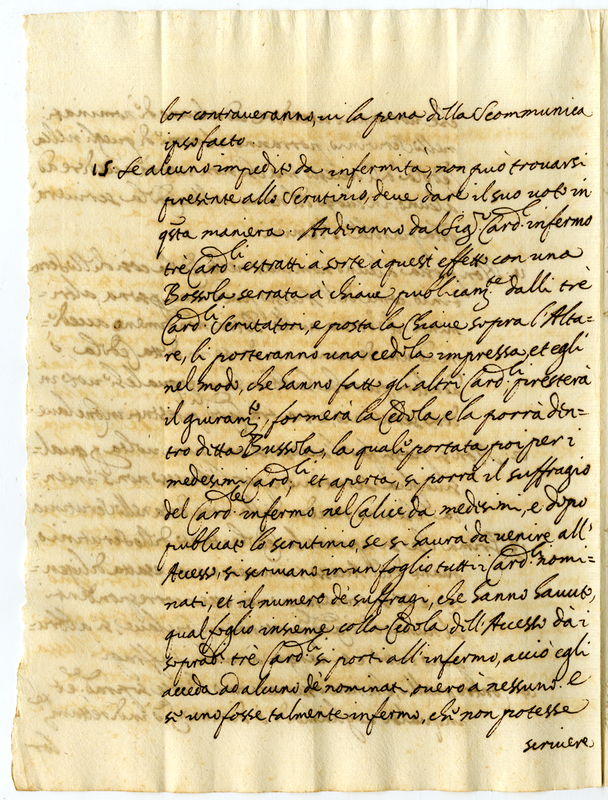 lor contraveranno, vi la pena della Scommunica
ipso facto.
15. Se alcuno impedito da infermità, non può trovarsi
presente allo Scrutinio, deve dare il suo voto in
qsta maniera. Anderanno dal Sigr Cardl infermo
trè Cardli estratti a sorte à quest'effetto con una
Bossola serrata à chiave publicamte dalli trè
Cardli Scrutatori, e posta la Chiave sopra l'Alta-
re, li porteranno una cedola impressa, et egli
nel modo, che hanno fatto gli altri Cardli presterà
il giuramto, formerà la Cedola, e la porrà den-
tro detta Bussola, la quale portata poi per i
medesimi Cardli, et aperta, si porrà il suffragio
del Cardle infermo nel Calice da medesimi, e dopo
publicato lo scrutinio, se si haurà da venire all'
Acesso, si scrivano in un foglio tutti i Cardli nomi-
nati, et il numero de suffragi, che hanno havuto,
qual foglio insieme colla Cedola dell'Accesso dà i
soprad. trè Cardli si porti all'infermo, acciò egli
acceda ad alcuno de' nominati, overo à nessuno. E
se uno fosse talmente infermo, che non potesse
scrivere